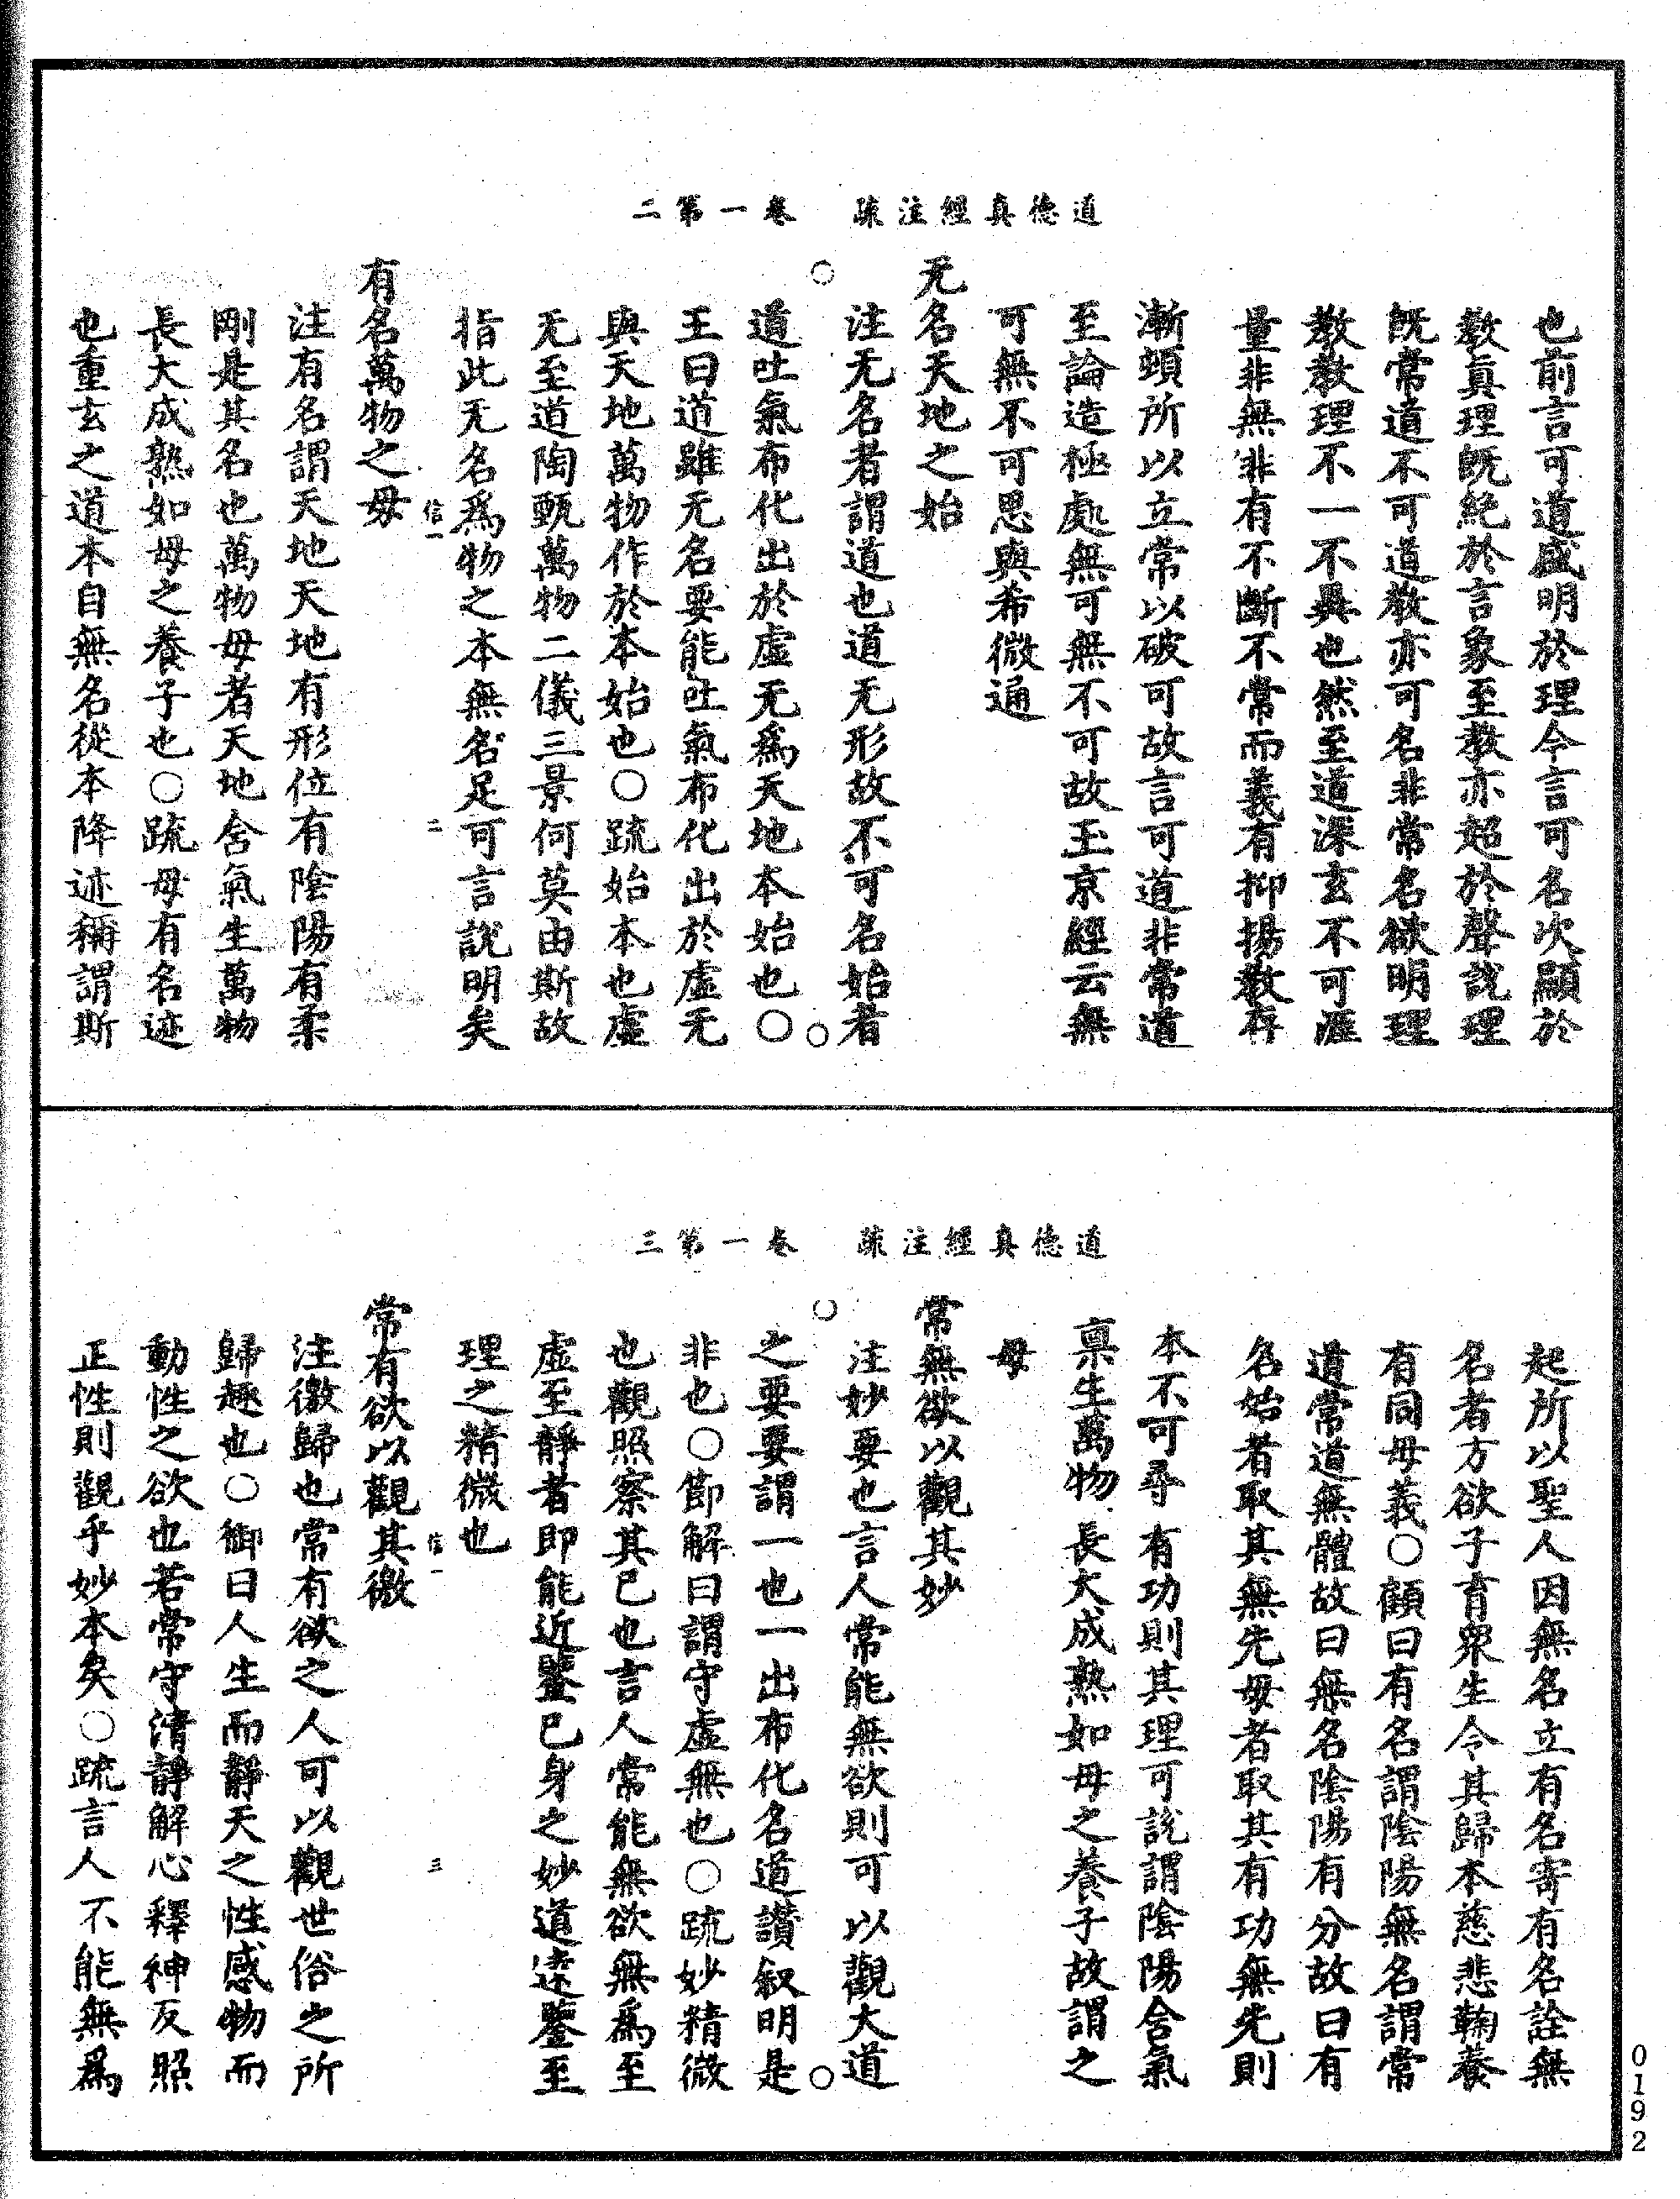 道德真經注疏　卷一第二
也前言可道盛明於理今言可名次顯於
教真理旣絕於言象至教亦超於聲說理
旣常道不可道教亦可名非常名欲明理
教教理不一不異也然至道深玄不可涯
量非無非有不斷不常而義有抑揚教存
漸頓所以立常以破可故言可道非常道
至論造極處無可無不可故玉京經云無
可無不可思與希微通
无名天地之始
注无名者謂道也道无形故不可名始者
道吐氣布化出於虛无爲天地本始也○
王曰道雖无名要能吐氣布化出於虛无
與天地萬物作於本始也○疏始本也虛
无至道陶甄萬物二儀三景何莫由斯故
指此无名爲物之本無名足可言說明矣
信一　二
有名萬物之母
注有名謂天地天地有形位有陰陽有柔
剛是其名也萬物母者天地含氣生萬物
長大成熟如母之養子也○疏母有名迹
也重玄之道本自無名從本降迹稱謂斯
道德真經注疏　卷一第三
起所以聖人因無名立有名寄有名詮無
名者方欲子育衆生令其歸本慈悲鞠養
有同母義○顧曰有名謂陰陽無名謂常
道常道無體故曰無名陰陽有分故曰有
名始者取其無先母者取其有功無先則
本不可尋有功則其理可說謂陰陽含氣
稟生萬物長大成熟如母之養子故謂之
母
常無欲以觀其妙
注妙要也言人常能無欲則可以觀大道
之要要謂一也一出布化名道讚叙明是
非也○節解曰謂守虛無也○疏妙精微
也觀照察其己也言人常能無欲無爲至
虛至靜者即能近鑒己身之妙道遠鑒至
理之精微也
信一　三
常有欲以觀其徼
注徼歸也常有欲之人可以觀世俗之所
歸趣也○御曰人生而靜天之性感物而
動性之欲也若常守清靜解心釋神反照
正性則觀乎妙本矣○疏言人不能無爲
0192